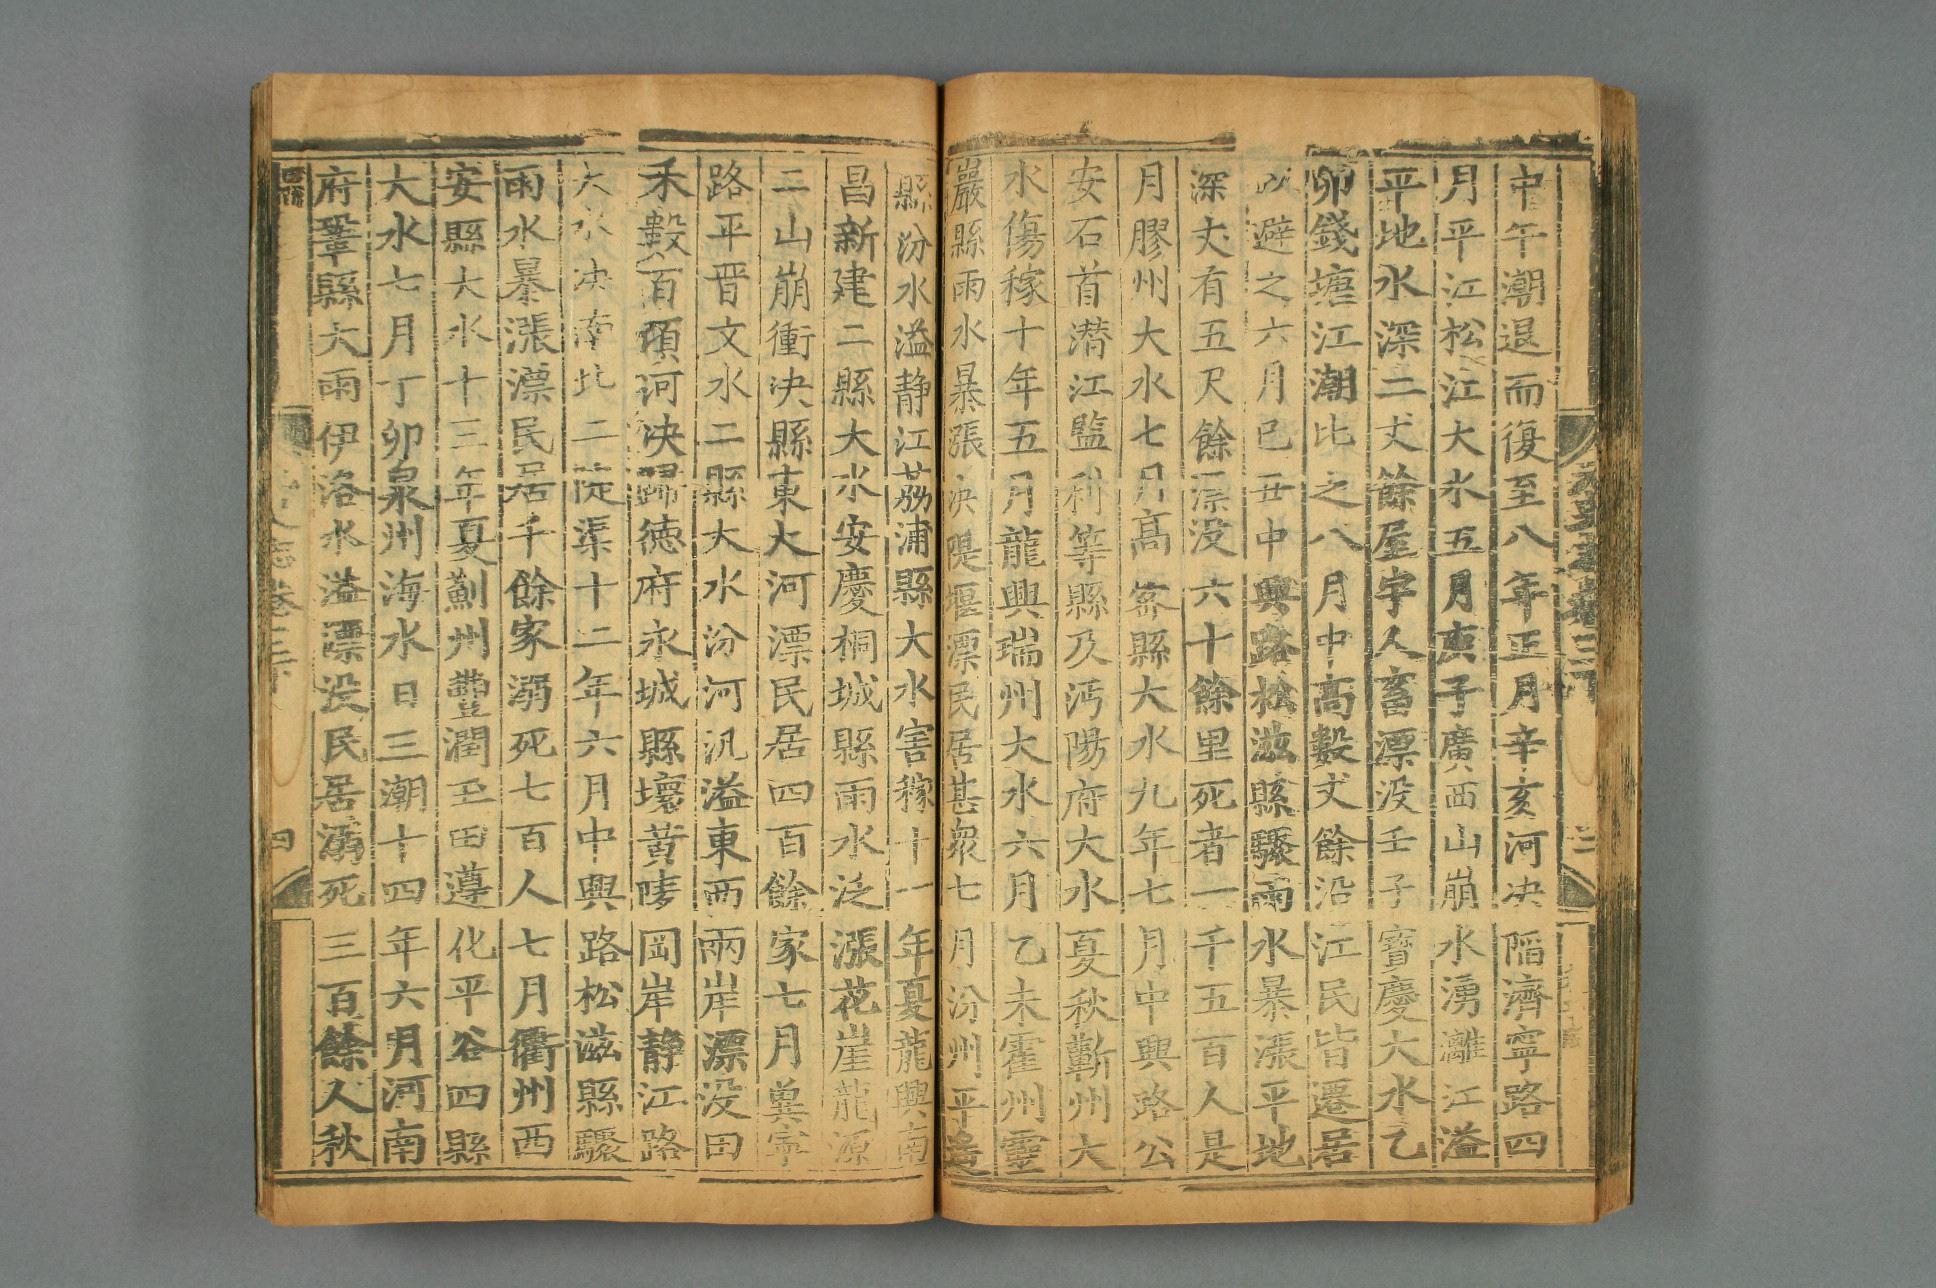 中午潮退而復至八年正月辛亥河决陷濟寧路四
月平江松江大水五月庚子廣西山崩水湧灕江溢
平地水深二丈餘屋宇人畜漂没壬子寶慶大水乙
卯錢塘江潮比之八月中高數丈餘沿江民皆遷居
以避之六月己丑中興路松滋縣驟雨水暴漲平地
深丈有五尺餘漂没六十餘里死者一千五百人是
月膠州大水七月高密縣大水九年七月中興路公
安石首潜江監利等縣及沔陽府大水夏秋蘄州大
水傷稼十年五月龍興瑞州大水六月乙未霍州靈
巖縣雨水暴漲决堤堰漂民居甚衆七月汾州平遥
縣汾水溢静江荔浦縣大水害稼十一年夏龍興南
昌新建二縣大水安慶桐城縣雨水泛漲花崖龍源
二山崩衝决縣東大河漂民居四百餘家七月冀寧
路平晋文水二縣大水汾河汎溢東西兩岸漂没田
禾數百頃河决歸德府永城縣壞黄陵岡岸静江路
大水决南北二陡渠十二年六月中興路松滋縣驟
雨水暴漲漂民居千餘家溺死七百人七月衢州西
安縣大水十三年夏薊州豐潤玉田遵化平谷四縣
大水七月丁卯泉州海水日三潮十四年六月河南
府鞏縣大雨伊洛水溢漂没民居溺死三百餘人秋
四